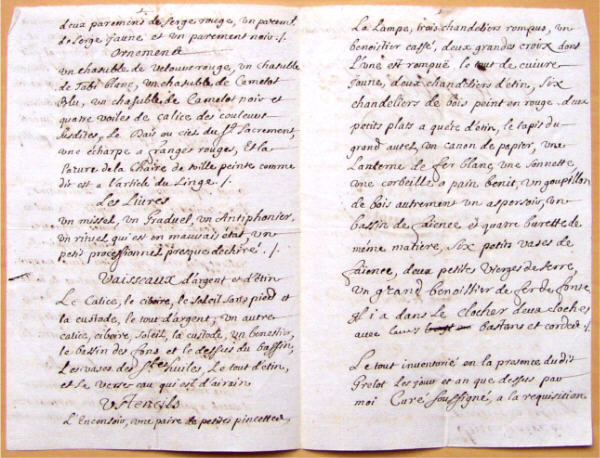 deux parements de serge rouge, un parement
de serge jaune et un parement noir ./.
Ornements
un chasuble de velours rouge, un chasuble
de Tabi blanc, un chasuble de Camelot
Blu, un chasuble de Camelot noir et
quatre voiles de calice des couleurs
susdites, Le Dais ou ciel du St Sacrement,
une écharpe a franges rouges, Et la
parure de la Chaire de toille peinte comme
dit est a l'article du Linge ./.
Les Livres
un missel, un Graduel, un Antiphonier,
un rituel qui est en mauvais état, un
petit processionnel presque dechiré ./.
Vaisseaux d'argent et d'étin
Le Calice, le ciboire, le soleil sans pied et
la custode, le tout d'argent, un autre
calice, ciboire, soleil, la custode, un benestier,
le bassin des fons et le dessus du bassin,
Les vases des Stes huiles, Le tout d'étin,
et le verse eau qui est d'airain
Ustencils
L'Encensoir, une paire de petites pincettes
La Lampe, trois chandeliers rompus, un
benoistier cassé, deux grandes croix dont
L'une est rompuë le tout de cuivre
jaune, deux chandeliers d'étin, six
chandeliers de bois peint en rouge. deux
petits plats a quéte d'étin, le tapis du
grand autel, un canon de papier, une
Lanterne de fer blanc, une sonnette,
une corbeille a pain benit, un goupillon
de bois autrement un aspersoir, un
bassin de faience et quatre burette de
méme matiere, six petits vases de
faience, deux petites vierges de terre,
un grand benoistier de fer de fonte
Il i a dans le clocher deux cloches
avec leurs bastans et cordes ./.
Le tout inventorié en la presence dudit
Grelot les jour et an que dessus par
moi Curé soussigné, a la requisition